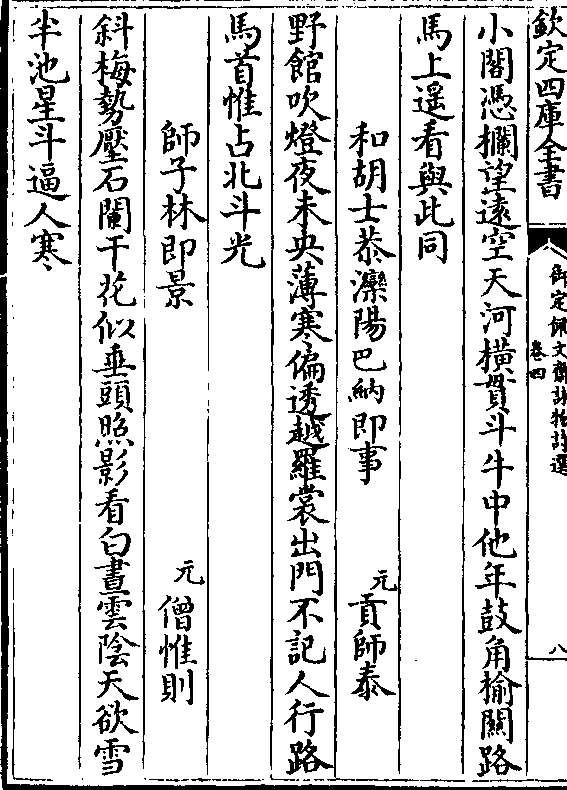 欽定四庫全書
御定佩文齋詠物詩選
卷四
八
小閣憑欄望遠空天河橫貫斗牛中他年鼓角榆關路
馬上遥看與此同
和胡士恭灤陽巴納即事
元
貢師泰
野館吹燈夜未央薄寒偏透越羅裳出門不記人行路
馬首惟占北斗光
師子林即景
元
僧惟則
斜梅勢壓石闌干花似垂頭照影看白晝雲陰天欲雪
半池星斗逼人寒